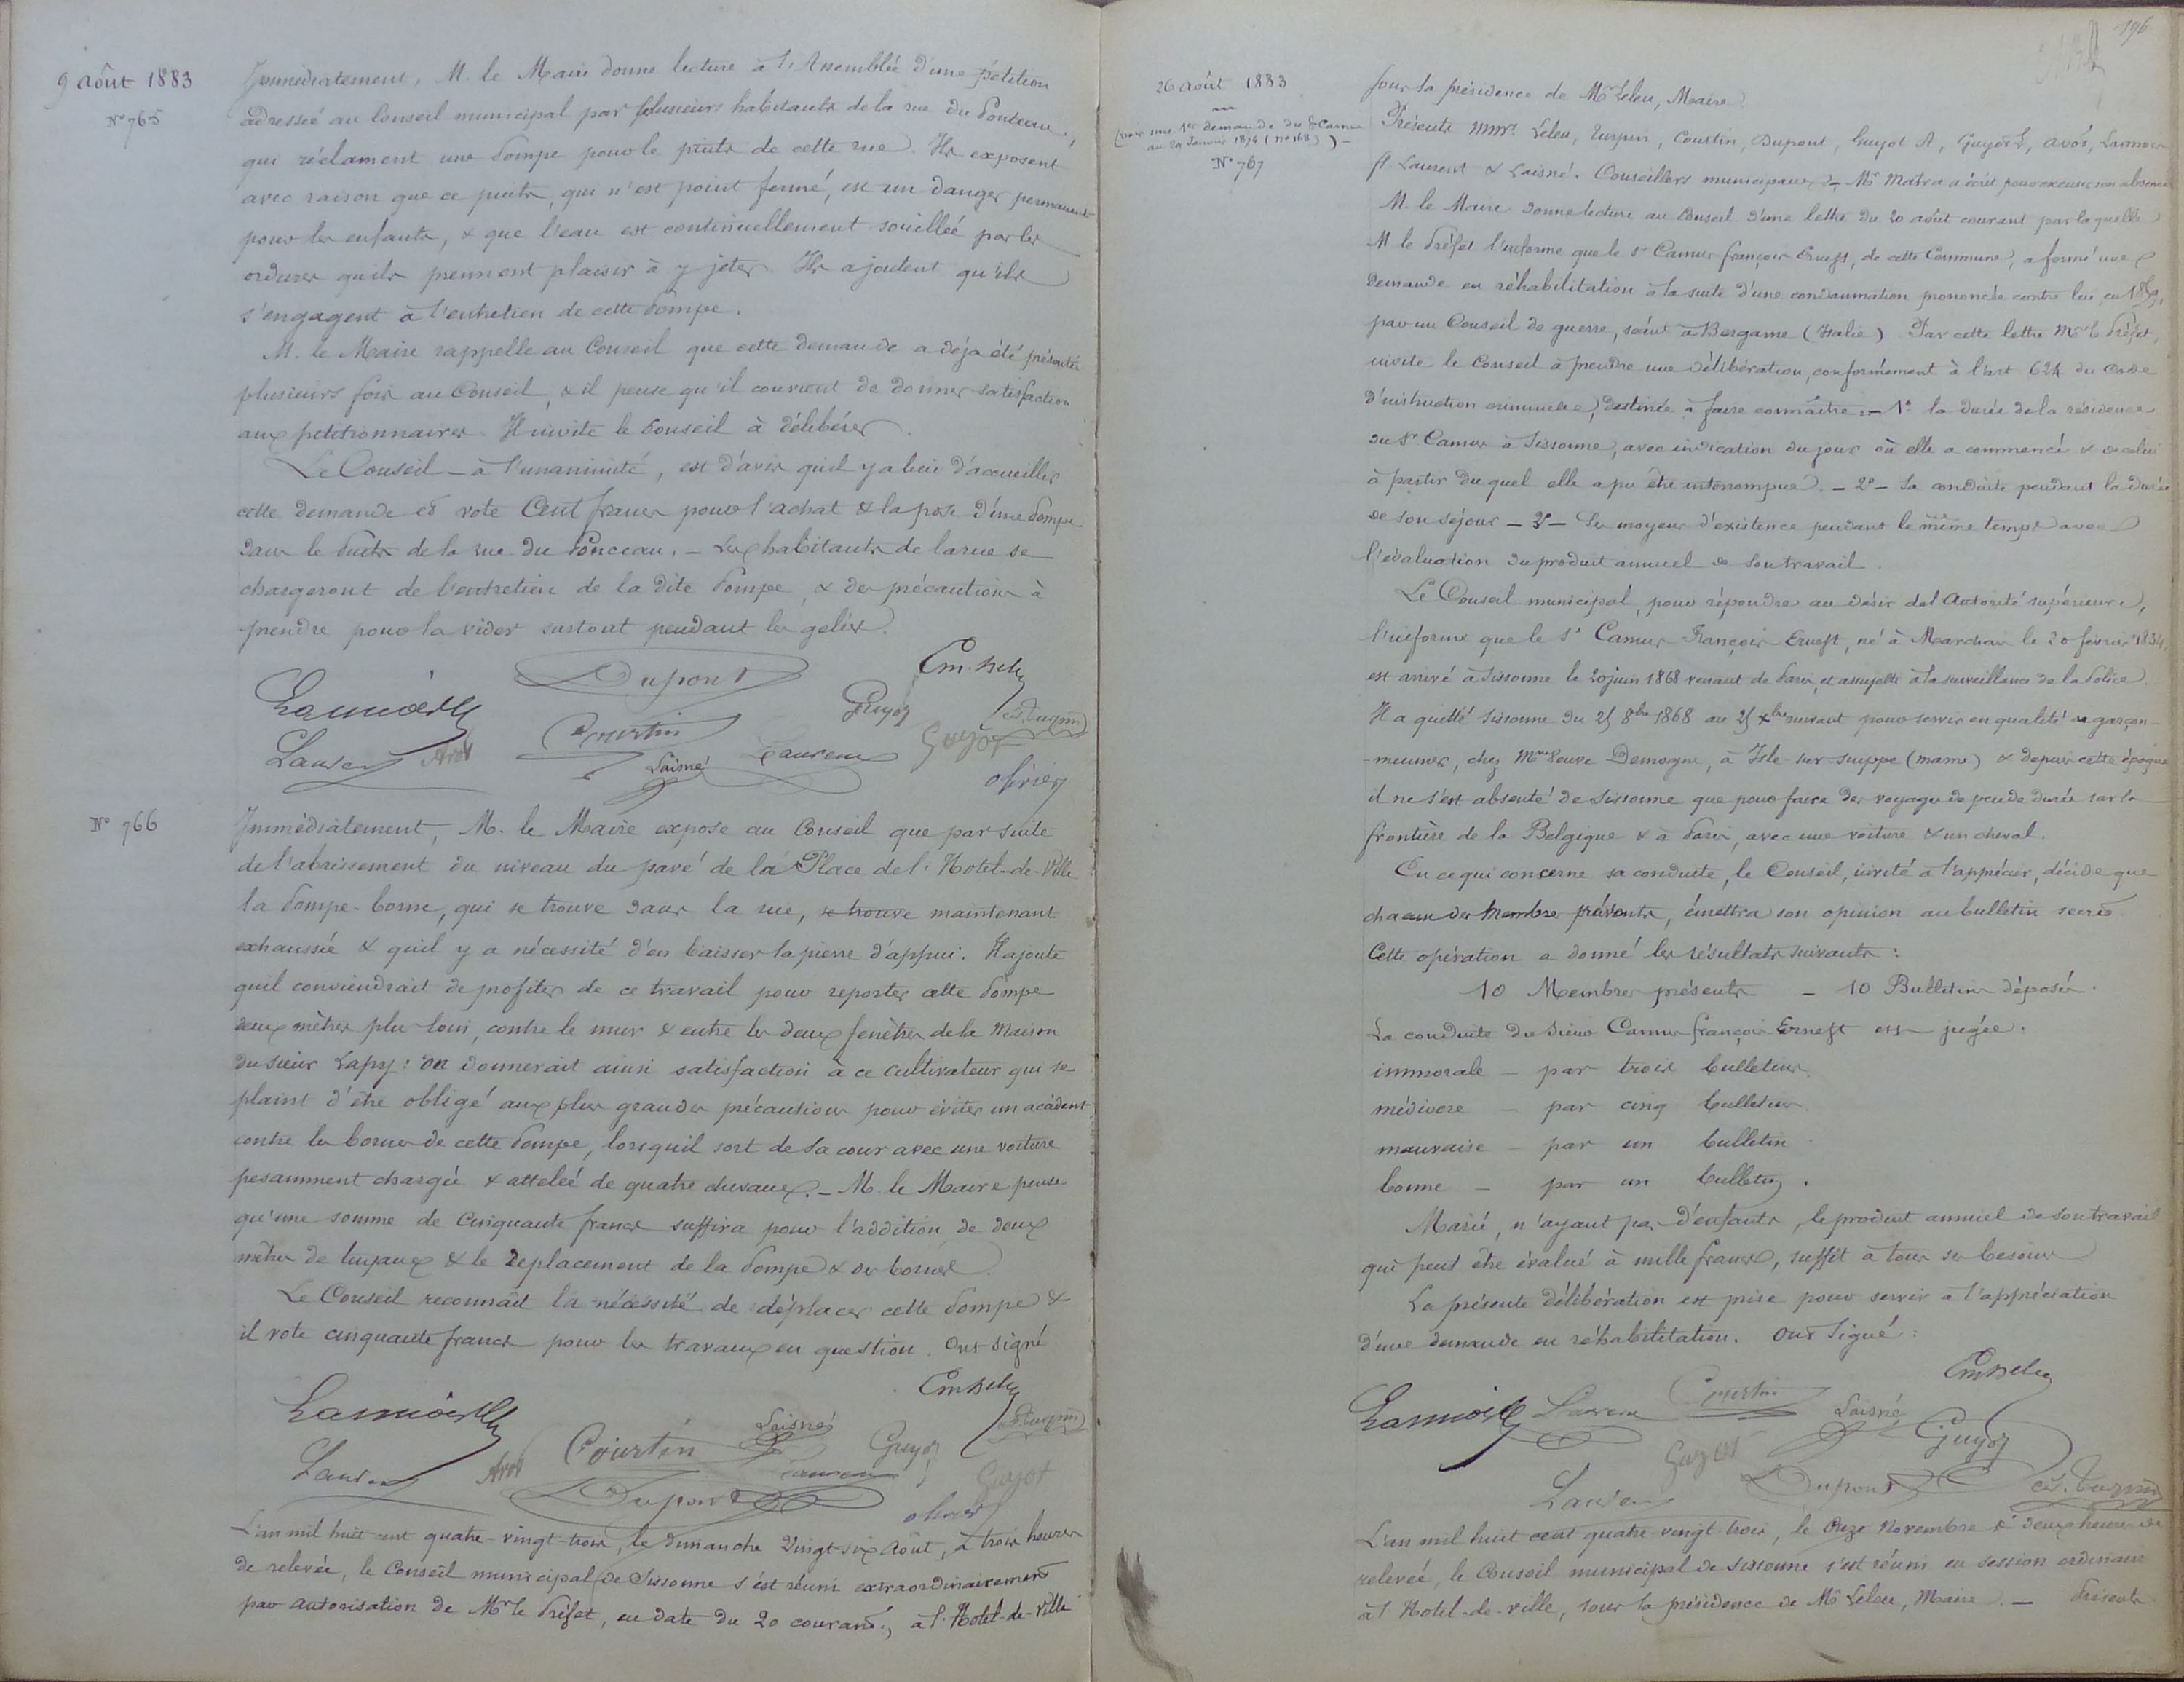 9 août 1883
N° 765
Immédiatement, M. le Maire donne lecture à l'Assemblée d'une pétition
adressée au Conseil municipal par plusieurs habitants de la rue du Ponceau,
qui réclament une Pompe pour le puits de cette rue. Ils exposent
avec raison que ce puits, qui n'est point fermé, est un danger permanent
pour les enfants, & que l'eau est continuellement souillée par les
ordures qu'ils prennent plaisir à y jeter. Ils ajoutent qu'ils
s'engagent à l'entretien de cette Pompe.
M. le Maire rappelle au Conseil que cette demande a déja été présentée
plusieurs fois au Conseil, & il pense qu'il convient de donner satisfaction
aux petitionnaires. Il invite le Conseil à délibérer.
Le Conseil - à l'unanimité, est d'avis qu'il y a lieu d'accueillir
cette demande et vote Cent francs pour l'achat & la pose d'une Pompe
dans le Puits de la rue du Ponceau. - Les habitants de la rue se
chargeront de l'entretien de la dite Pompe, & des précautions à
prendre pour la vider surtout pendant les gelées.
Em. Leleu
Dupont
Lannois
Guyot
Courtin
Turpin
Laurent
Avot
Laisné
Laurent
Guyot
Olivier
N° 766
Immédiatement, M. le Maire expose au Conseil que par suite
de l'abaissement du niveau du pavé de la Place de l'Hotel-de-Ville
la Pompe-borne, qui se trouve dans la rue, se trouve maintenant
exhaussée & qu'il y a nécessité d'en baisser la pierre d'appui. Il ajoute
qu'il conviendrait de profiter de ce travail pour reporter cette Pompe
deux mètres plus loin, contre le mur & entre les deux fenêtres de la Maison
du sieur Lapy: on donnerait ainsi satisfaction à ce cultivateur qui se
plaint d'être obligé aux plus grandes précautions pour éviter un accident
contre les bornes de cette Pompe, lorsqu'il sort de sa cour avec une voiture
pesamment chargée & attelée de quatre chevaux. - M. le Maire pense
qu'une somme de Cinquante francs suffira pour l'addition de deux
mètres de tuyaux & le déplacement de la Pompe & des bornes.
Le Conseil reconnaît la nécessité de déplacer cette Pompe &
il vote cinquante francs pour les travaux en question. Ont signé
Em Leleu
Lannois
Laisné
Turpin
Courtin
Guyot
Laurent
Avot
Laurent
Guyot
Dupont
Olivier
L'an mil huit cent quatre-vingt-trois, le dimanche Vingt-six Août, à trois heures
de relevée, le Conseil municipal de Sissonne s'est réuni extraordinairement
par autorisation de Mr le Préfet, en date du 20 courant, à l'Hotel-de-Ville
196
26 août 1883
(voir une 1re demande du Sr Camus
au 29 Janvier 1874 (n° 168)) -
N° 767
sous la présidence de Mr Leleu, Maire.
Présents MMrs Leleu, Turpin, Courtin, Dupont, Guyot A, Guyot L, Avot, Lannois
fs Laurent & Laisné. Conseillers municipaux - Mr Matra a écrit pour excuser son absence
M. le Maire donne lecture au Conseil d'une lettre du 20 août courant par laquelle
M le Préfet l'informe que le Sr Camus françois Ernest, de cette Commune, a formé une
Demande en réhabilitation à la suite d'une condamnation prononcée contre lui en
par un Conseil de guerre, séant à Bergame (Italie). Par cette lettre Mr le Préfet,
invite le Conseil à prendre une délibération, conformément à l'art 624 du Code
d'instruction criminelle, destinée à faire connaître: - 1° la durée de la résidence
du Sr Camus à Sissonne, avec indication du jour où elle a commencé & de celui
à partir duquel elle a pu être interrompue. - 2° - Sa conduite pendant la durée
de son séjour - 3° - Ses moyens d'existence pendant le même temps avec
l'évaluation du produit annuel de son travail.
Le Conseil municipal, pour répondre au désir de l'Autorité supérieure,
l'informe que le Sr Camus François Ernest, né à Marchais le 20 février 1834,
est arrivé à Sissonne le 20 juin 1868 venant de Paris, et assujetti à la surveillance de la Police.
Il a quitté Sissonne du 25 8bre 1868 au 25 Xbre suivant pour servir en qualité de garçon-
-meunier, chez Mme Veuve Demorgne, à Isle-sur-Suippe (marne) & depuis cette époque
il ne s'est absenté de Sissonne que pour faire des voyages de peu de durée sur la
frontière de la Belgique & à Paris, avec une voiture & un cheval.
En ce qui concerne sa conduite, le Conseil, invité à l'apprécier, décide que
chacun des Membres présents, émettra son opinion au bulletin secret.
Cette opération a donné les résultats suivants :
10 Membres présents - 10 Bulletins déposés.
La conduite du sieur Camus françois Ernest est jugée:
immorale - par trois bulletins.
médiocre - par cinq bulletins.
mauvaise - par un bulletin.
bonne - par un bulletin.
Marié, n'ayant pas d'enfants, le produit annuel de son travail
qui peut être évalué à mille francs, suffit à tous ses besoins
La présente délibération est prise pour servir à l'appréciation
d'une demande en réhabilitation. Ont Signé :
Em Leleu
Lannois
Laurent
Courtin
Laisné
Guyot
Guyot
Laurent
Dupont
Turpin
L'an mil huit cent quatre-vingt-trois, le Onze Novembre à deux heures de
relevée, le Conseil municipal de Sissonne s'est réuni en session ordinaire
à l'Hotel-de-ville, sous la présidence de Mr Leleu, Maire. - Présents